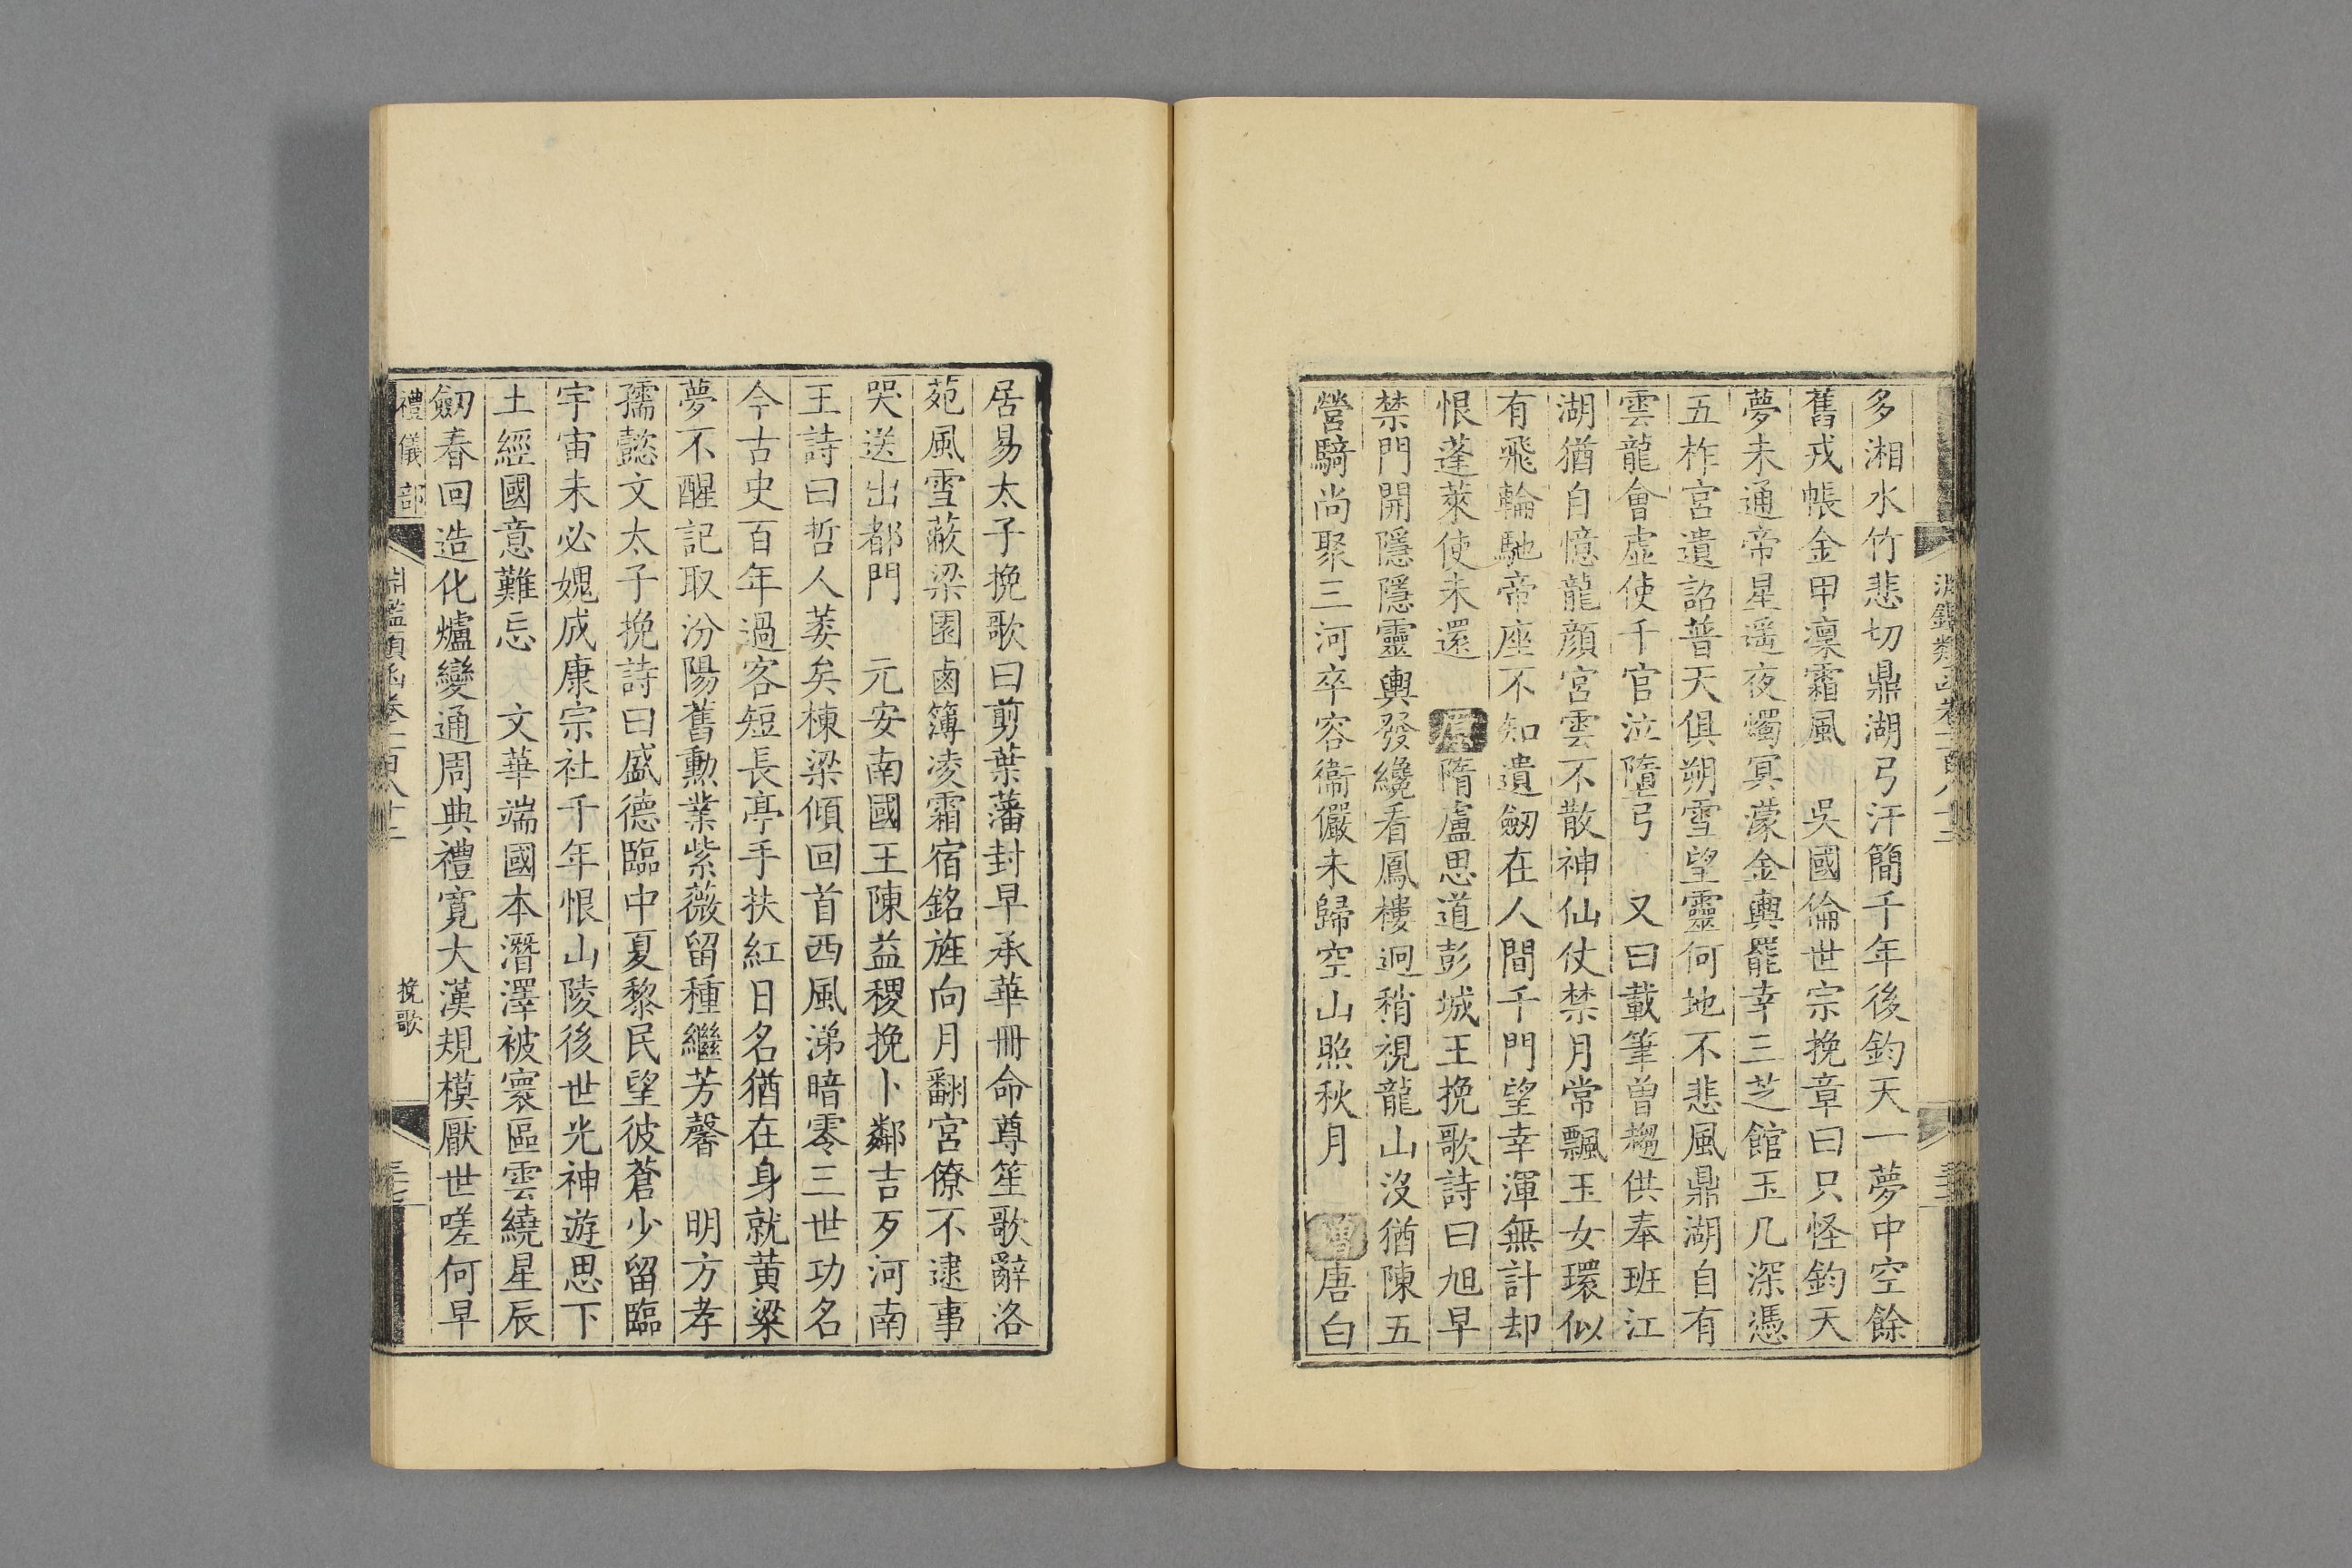 多湘水竹悲切鼎湖弓汗簡千年後鈞天一夢中空餘
舊戎帳金甲凜霜風　吳國倫世宗挽章曰只怪鈞天
夢未通帝星遥夜燭冥濛金輿罷幸三芝館玉几深憑
五柞宮遺詔普天俱朔雪望靈何地不悲風鼎湖自有
雲龍會虛使千官泣墮弓　又曰載筆曾趨供奉班江
湖猶自憶龍顔宮雲不散神仙仗禁月常飄玉女環似
有飛輪馳帝座不知遺劒在人間千門望幸渾無計却
恨蓬萊使未還　原隋盧思道彭城王挽歌詩曰旭早
禁門開隱隱靈輿發纔看鳳樓迥稍視龍山沒猶陳五
營騎尚聚三河卒容衛儼未歸空山照秋月　增唐白
居易太子挽歌曰剪葉藩封早承華冊命尊笙歌辭洛
苑風雪蔽梁園鹵簿凌霜宿銘旌向月翻宮僚不逮事
哭送出都門　元安南國王陳益稷挽卜鄰吉歹河南
王詩曰哲人萎矣棟梁傾回首西風涕暗零三世功名
今古史百年過客短長亭手扶紅日名猶在身就黃粱
夢不醒記取汾陽舊勲業紫薇留種繼芳馨　明方孝
孺懿文太子挽詩曰盛德臨中夏黎民望彼蒼少留臨
宇宙未必媿成康宗社千年恨山陵後世光神遊思下
土經國意難忘　文華端國本潛澤被寰區雲繞星辰
劒春回造化爐變通周典禮寛大漢規模厭世嗟何早
禮儀部
淵鑑類函卷一百八十二
挽歌